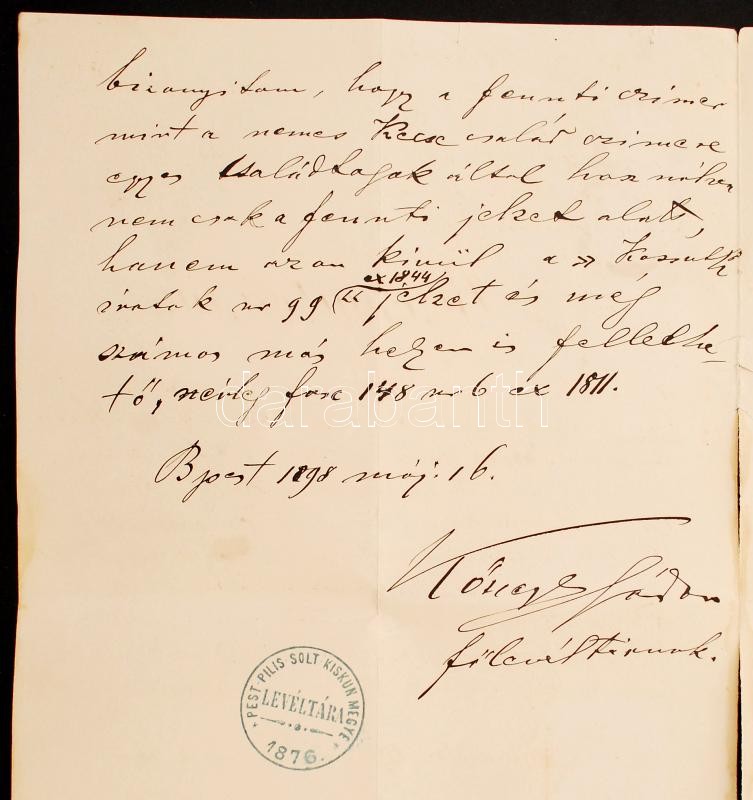 bizonyitom, hogy a fennti czimer
mint a nemes Kecse család czimere
egyes családtagok által használva
nem csak a fennti jelzet alatt,
hanem azon kivül a » Kossuth
iratok nr 99 ex 1844 « jelzet és még
számos más helyen is fellelhe-
tő, névleg fasc 148 nr 6 ex 1811.
Bpest 1898 máj. 16.
főlevéltárnok.
PEST-PILIS SOLT KISKUN MEGYE
LEVÉLTÁRA
1876.
darabanth